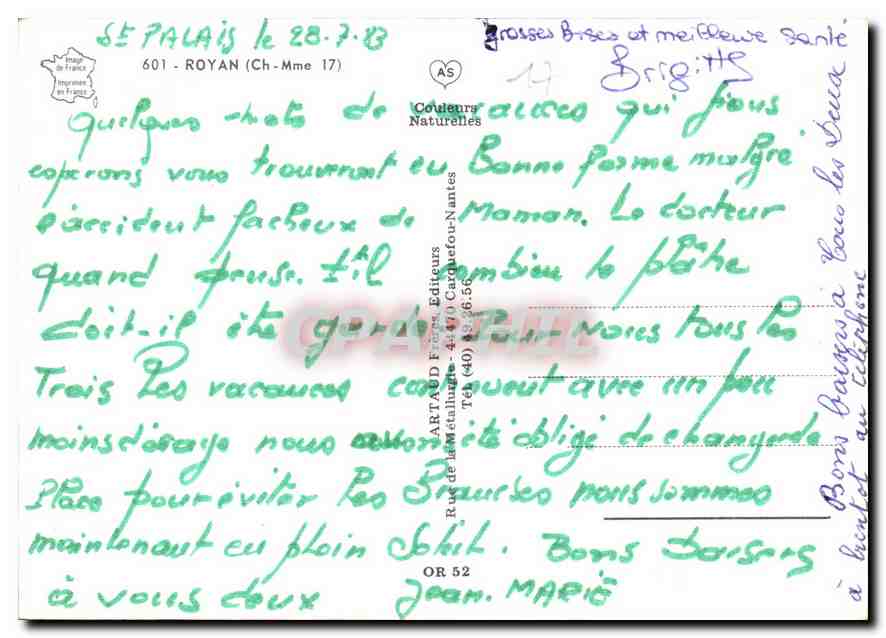 St PALAIS le 28-7-83
grosses Bises et meilleure santé
Brigitte
Image
de France
Imprimée
en France
601 - ROYAN (Ch-Mme 17)
AS
17
Couleurs
Naturelles
Quelques mots de vacances qui nous
esperons vous trouveront eu Bonne forme malgré
l'accident facheux de Maman. Le docteur
quand pense-t-il combien le plâtre
doit-il être gardé Pour nous tous les
Trois les vacances continuent avec un peu
moins d'orage nous avons été obligé de changer de
Place pour éviter les Branches nous sommes
maintenant eu plein Soleil. Bons Baisers
à vous deux Jean. MARIE
ARTAUD Frères, Editeurs
Rue de la Métallurgie - 44470 Carquefou-Nantes
Tél. (40) 49.26.56
OR 52
Bons baisers à Tous les Deux
à bientot au téléphone
CPAPHIL